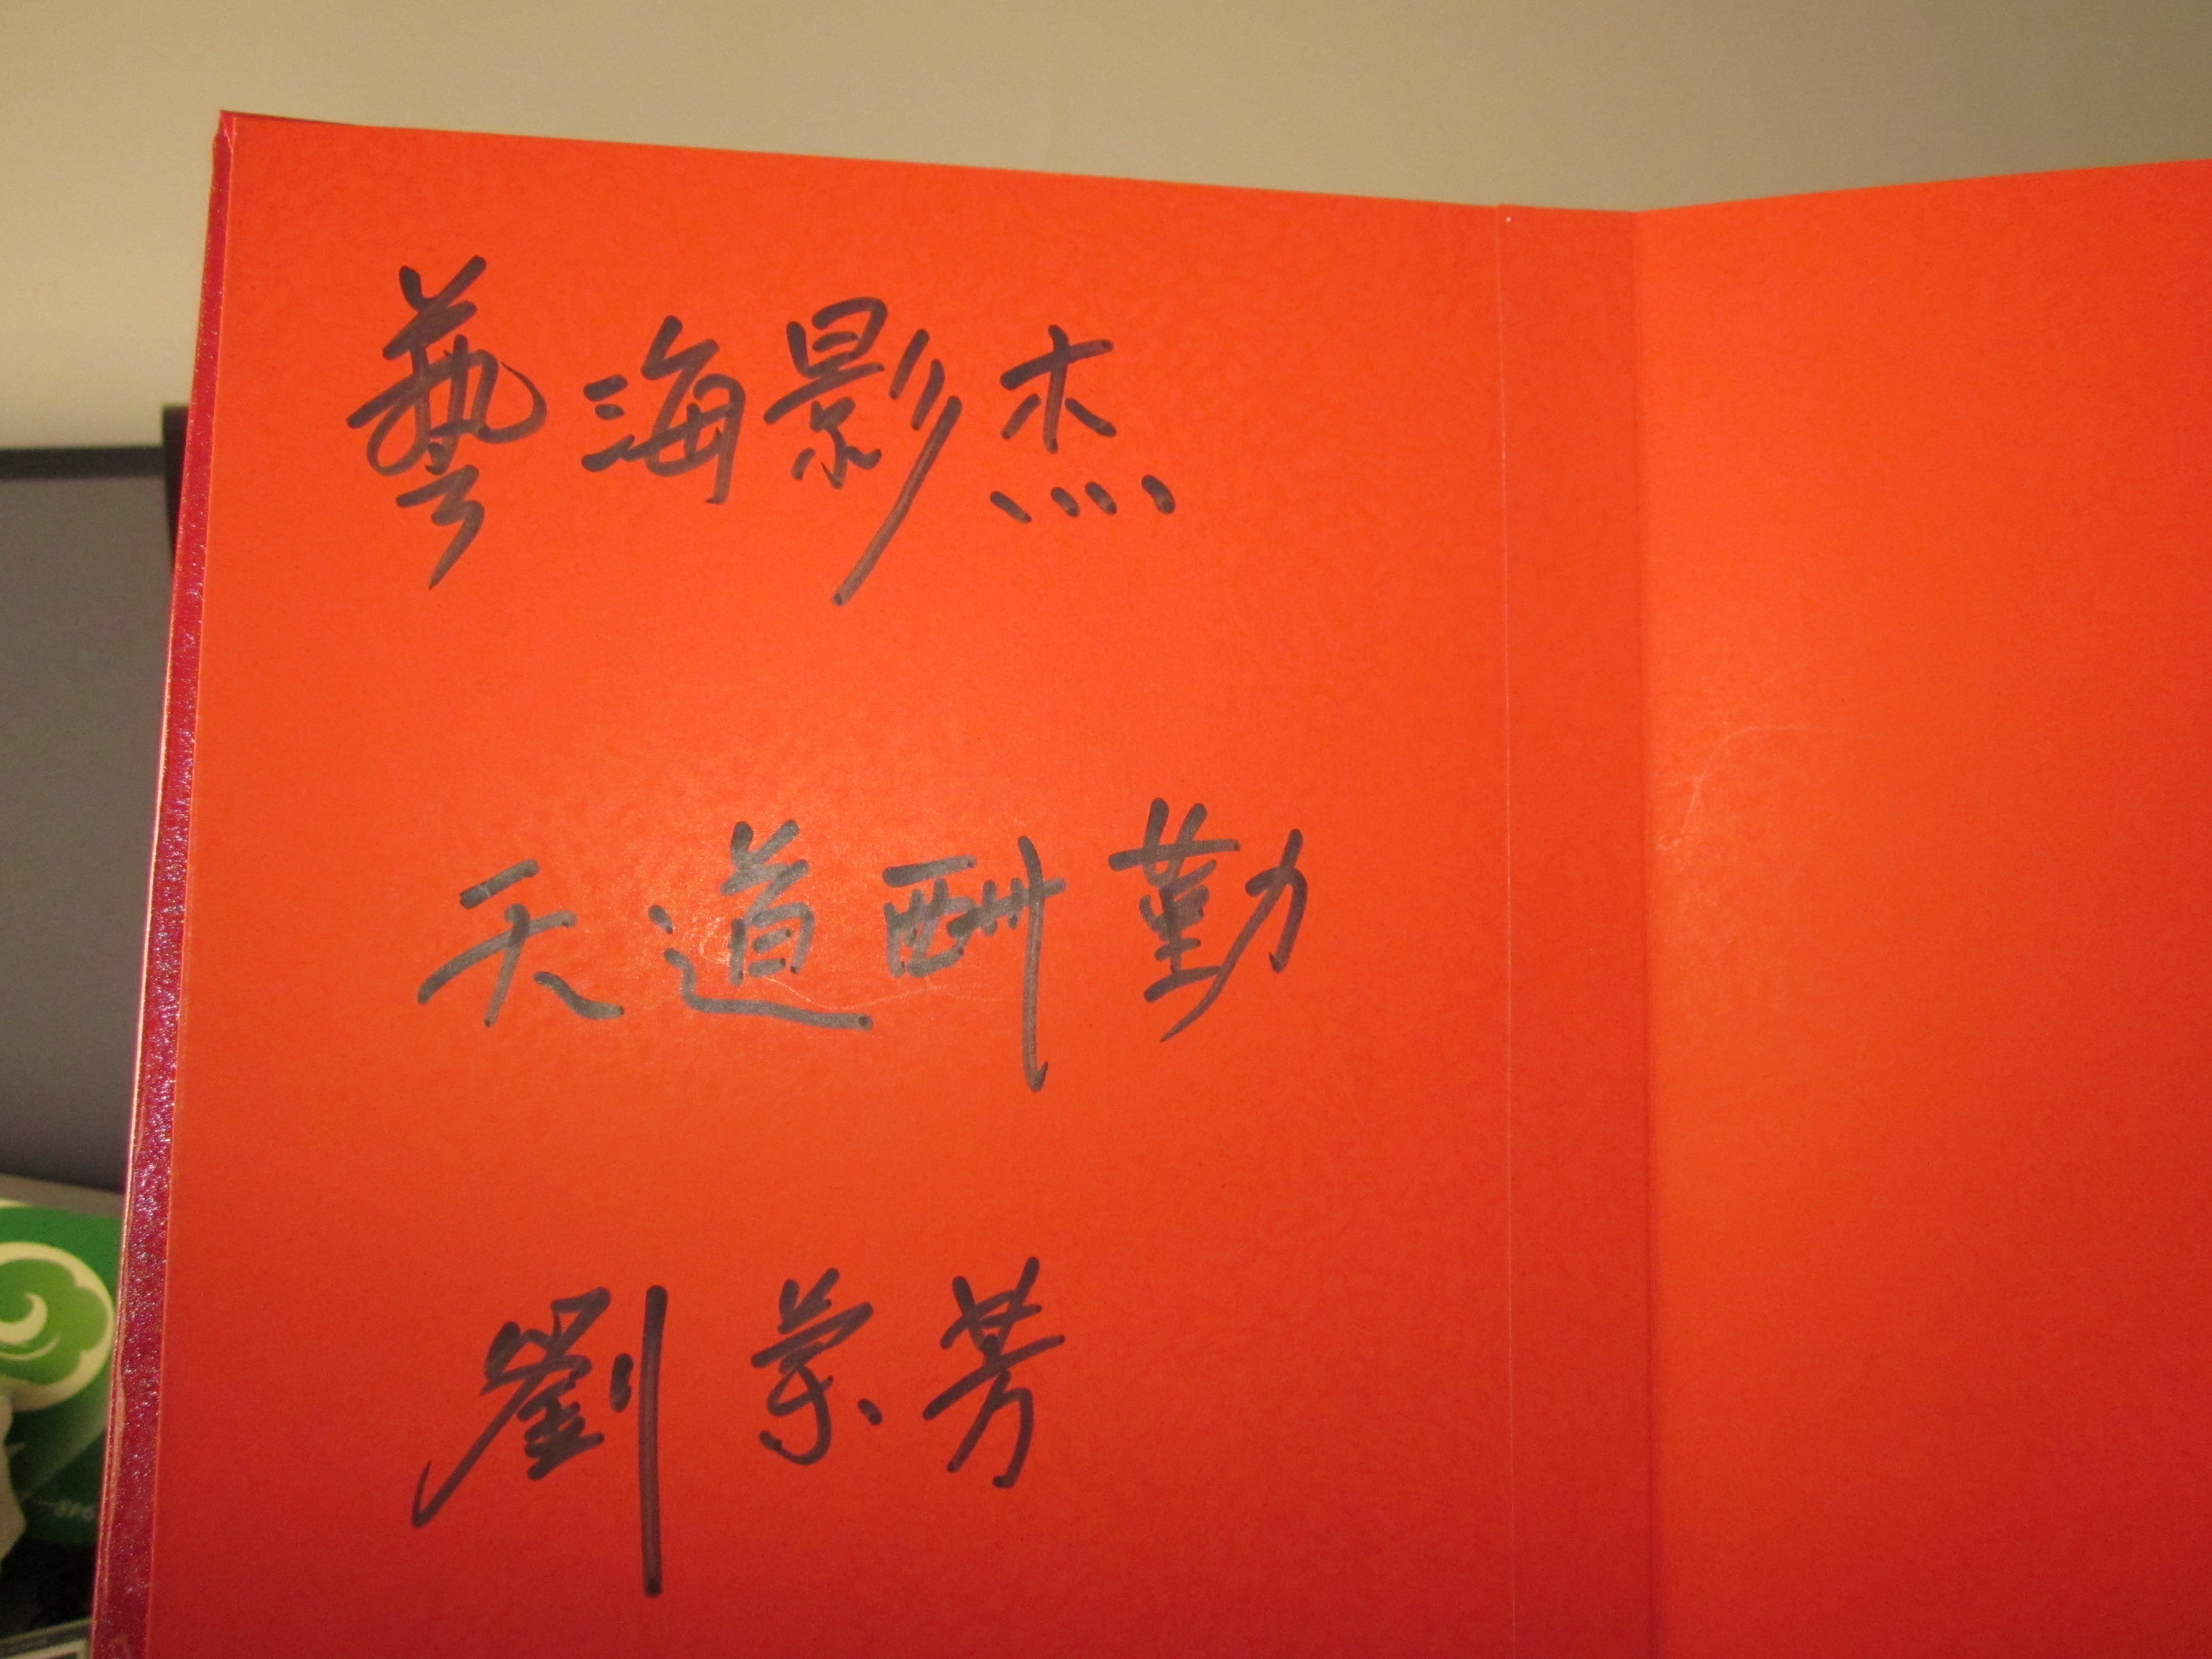 藝海影杰
天道酬勤
劉荣芳